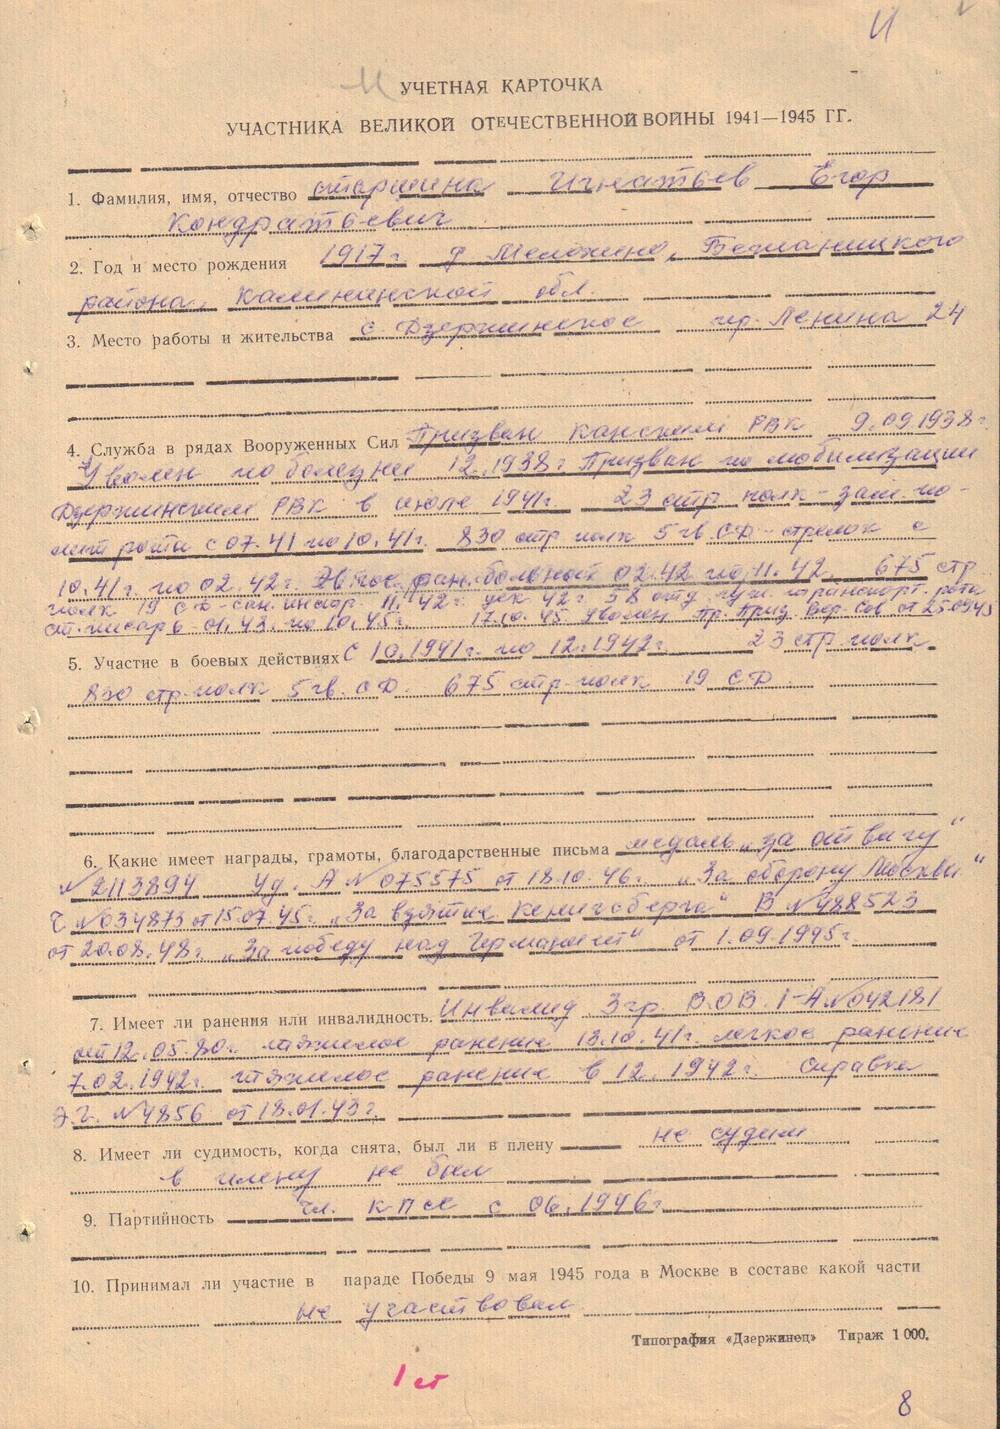 И
И
УЧЕТНАЯ КАРТОЧКА
УЧАСТНИКА ВЕЛИКОЙ ОТЕЧЕСТВЕННОЙ ВОЙНЫ 1941—1945 ГГ.
1. Фамилия, имя, отчество старшина Игнатьев Егор
Кондратьевич
2. Год и место рождения 1917 г. д. Бежаницкого
района, Калининской обл.
3. Место работы и жительства с. Дзержинское пер. Ленина 24
4. Служба в рядах Вооруженных Сил Призван Канским РВК 9.09.1938 г.
Уволен по болезни 12.1938 г. Призван по мобилизации
Дзержинским РВК в июле 1941 г. 23 стр. полк - зам. по-
лит роты с 07.41 по 10.41 г. 830 стр. полк 5 гв. СД - стрелок с
10.41 г. по 02.42 г. Эв. гос. ран. больной 02.42 по 11.42 675 стр.
полк 19 СД - сан. инстр. 11. 42 г. дек 42 г. 58 отд. гуж. транспорт. рота
ст. писарь 01.43. по 10.45 г. 17.10.45 Уволен Пр. През. Вер. Сов. от 25.09.45
5. Участие в боевых действиях С 10.1941 г. по 12.1942 г. 23 стр. полк.
830 стр. полк 5 гв. СД. 675 стр. полк 19 СД.
6. Какие имеет награды, грамоты, благодарственные письма медаль „за отвагу“
№ 2113894 Уд. А № 075575 от 18.10.46 г. „За оборону Москвы“
№ 034873 от 15.07.45 г. „За взятие Кенигсберга“ В № 488523
от 20.08.48 г. „За победу над Германией“ от 1.09.1945 г.
7. Имеет ли ранения или инвалидность. Инвалид 3 гр. В.О.В. I-А № 042181
от 12.05.80 г. тяжелое ранение 13.10.41 г. легкое ранение
7.02.1942 г. тяжелое ранение в 12.1942 г. справка
Э.Г. № 4856 от 18.01.43 г.
8. Имеет ли судимость, когда снята, был ли в плену не судим
в плену не был
9. Партийность чл. КПСС с 06.1946 г.
10. Принимал ли участие в параде Победы 9 мая 1945 года в Москве в составе какой части
не участвовал
Типография «Дзержинец» Тираж 1 000.
1 ст
8